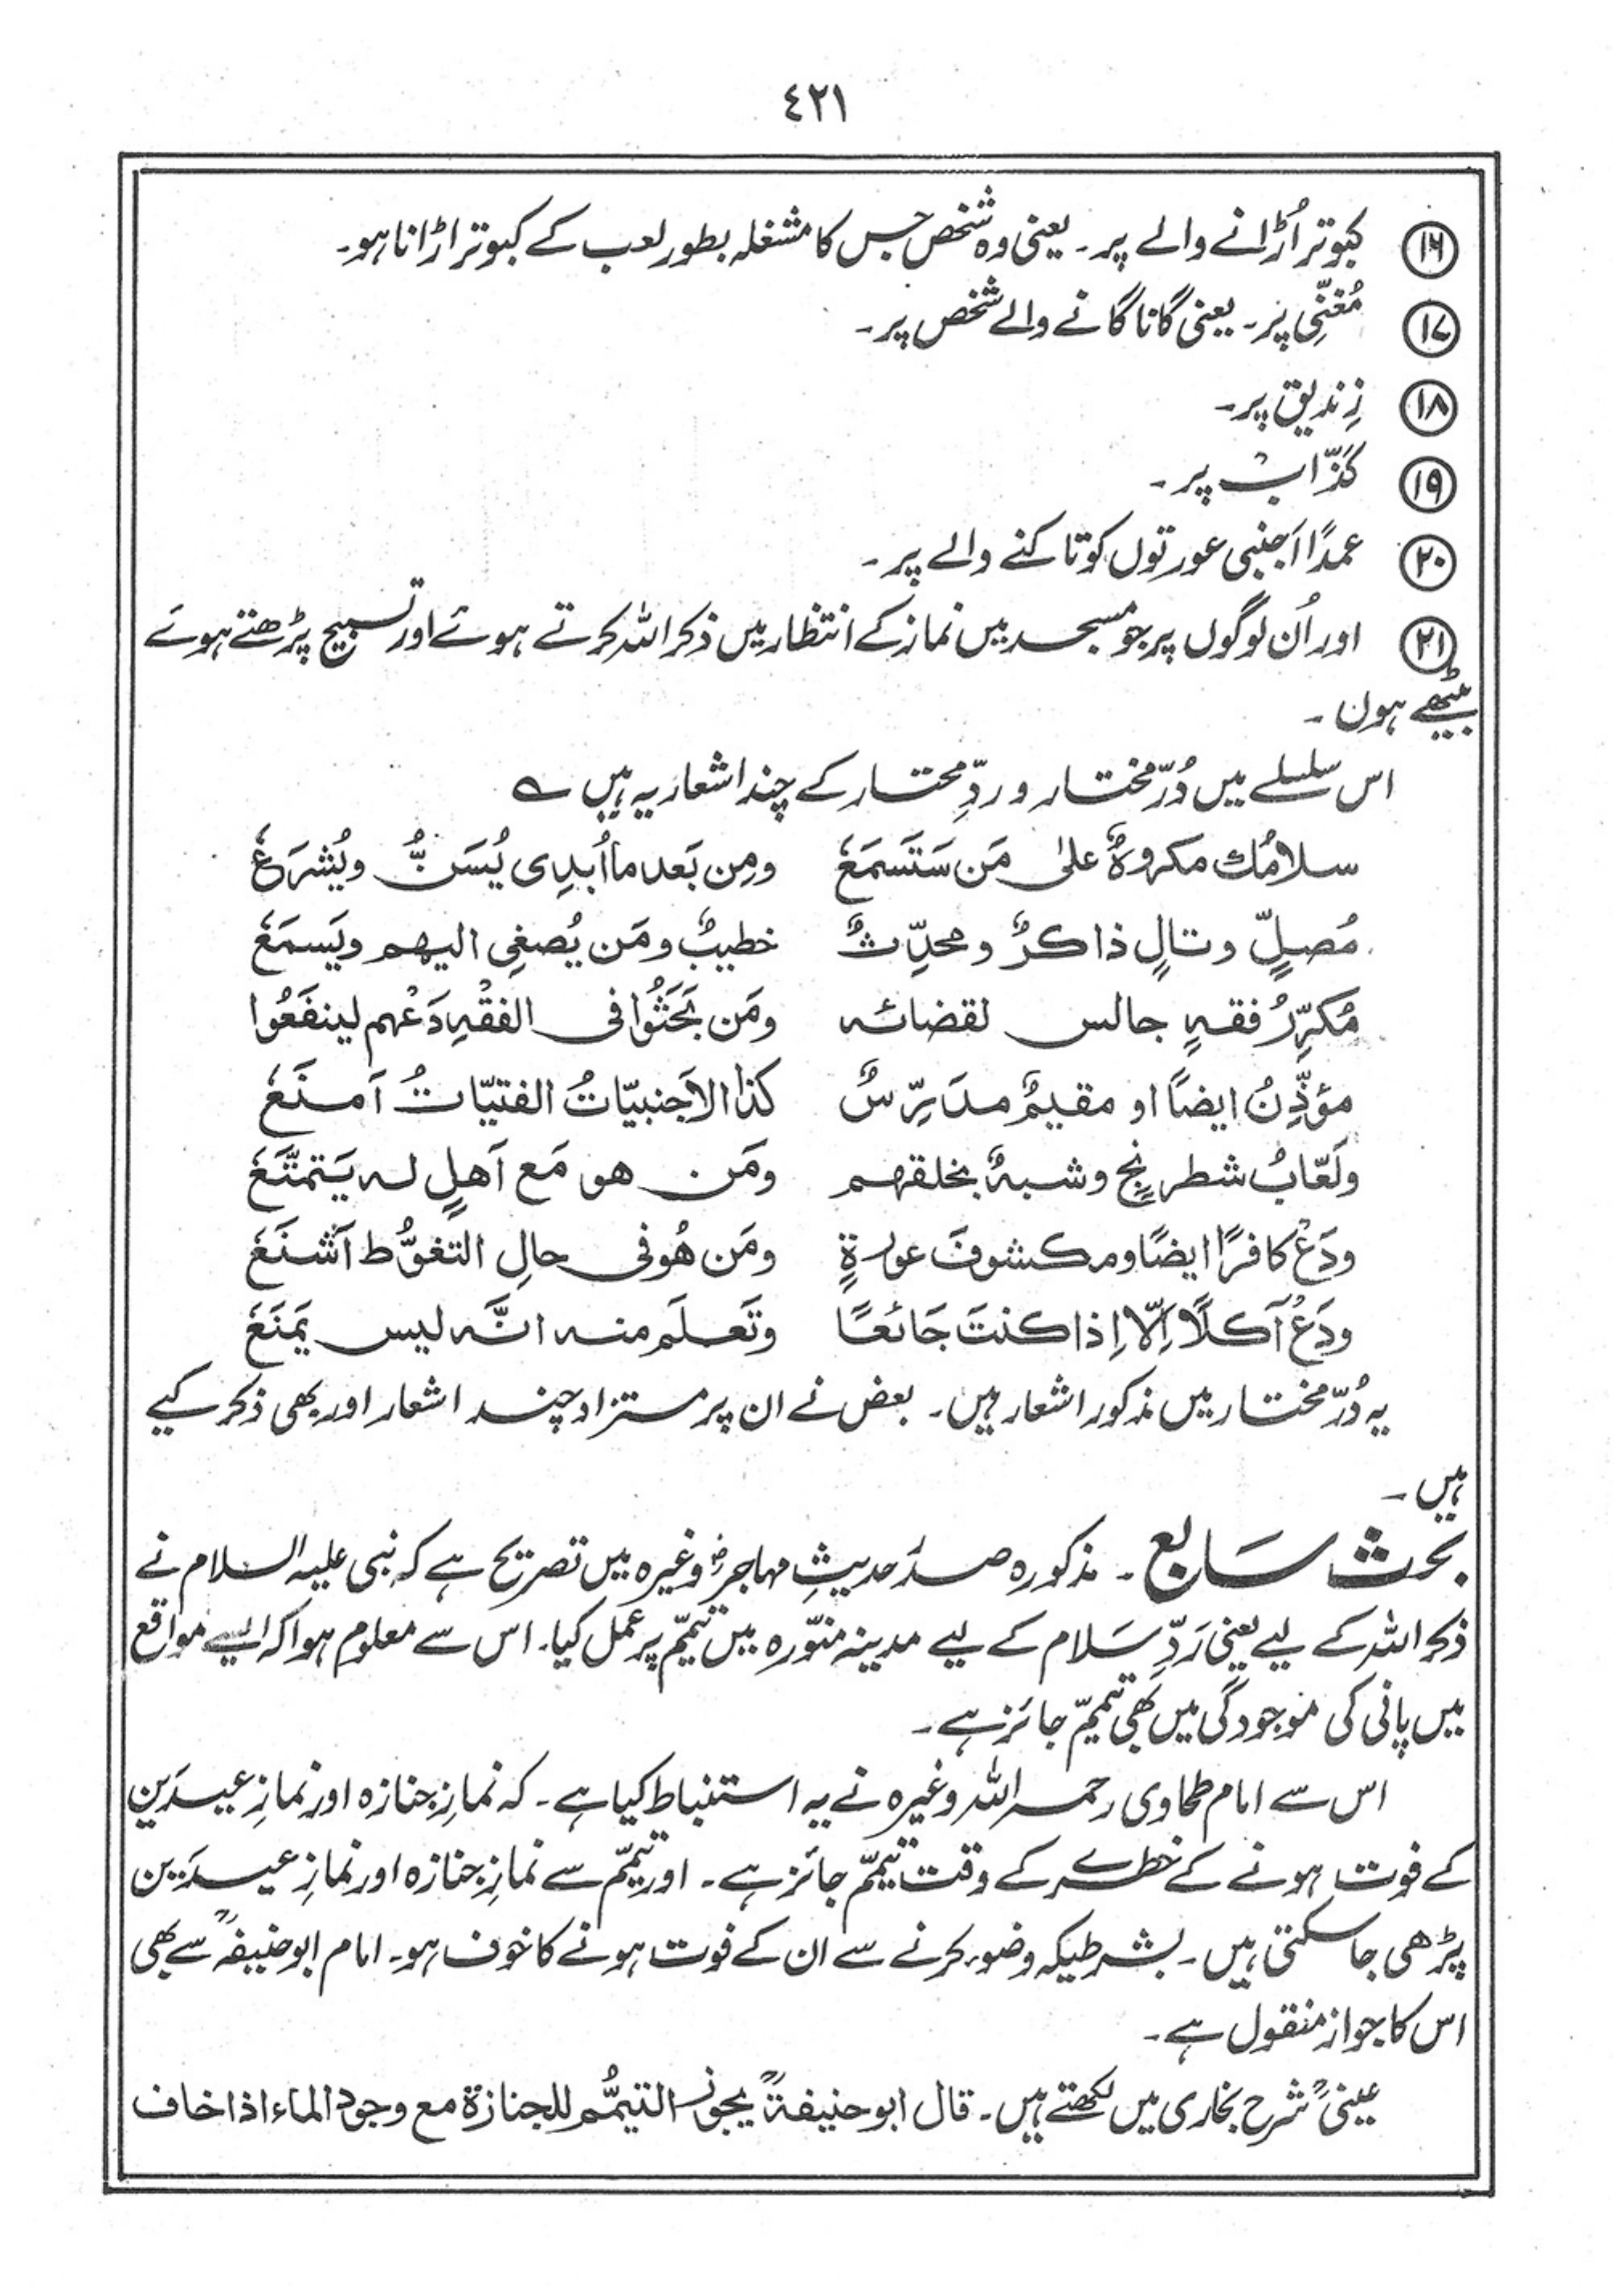 ٤٢١
١٦ کبوتر اُڑانے والے پر۔ یعنی وہ شخص جس کا مشغلہ بطور لعب کے کبوتر اڑانا ہو۔
١٧ مُغنِّی پر۔ یعنی گانا گانے والے شخص پر۔
١٨ زِندیق پر۔
١٩ کَذّاب پر۔
٢٠ عمدًا اَجنبی عورتوں کو تاکنے والے پر۔
٢١ اور اُن لوگوں پر جو مسجد میں نماز کے انتظار میں ذکر اللہ کرتے ہوئے اور تسبیح پڑھتے ہوئے
بیٹھے ہوں۔
اس سلسلے میں دُرّ مختار و ردِّ محتار کے چند اشعار یہ ہیں ؎
سلامُك مکروهٌ علیٰ مَن سَتَسمَعُ ومِن بَعد ما اُبدِی یُسَنُّ ویُشرَعُ
مُصلٍّ وتالٍ ذاکرٌ ومحدِّثٌ خطیبٌ ومَن یُصغِی الیهم ویَسمَعُ
مُکرِّرُ فقهٍ جالس لقضائه ومَن بَحَثُوا فی الفقْهِ دَعْهم لینفَعُوا
مؤذِّنُ ایضًا او مقیمٌ مدَرِّسٌ کذا الاَجنبیّاتُ الفتیّاتُ اَمنَعُ
ولَعّابُ شطرنجٍ وشبهٌ بخلقهم ومَن هو مَع اَهلٍ له یَتمتَّعُ
ودَعْ کافرًا ایضًا ومکشوفَ عورةٍ ومَن هُو فی حالِ التغوُّط اَشنَعُ
ودَعْ آکلًا اِلّا اِذا کنتَ جَائعًا وتَعلَم منه انَّه لیس یَمنَعُ
یہ دُرّ مختار میں مذکور اشعار ہیں۔ بعض نے ان پر مستزاد چند اشعار اور بھی ذکر کیے
ہیں۔
بحث سَابع۔ مذکورہ صدُر حدیثِ مہاجرؓ وغیرہ میں تصریح ہے کہ نبی علیہ السلام نے
ذکر اللہ کے لیے یعنی رَدِّ سَلام کے لیے مدینہ منوّرہ میں تیمّم پر عمل کیا۔ اس سے معلوم ہوا کہ ایسے مواقع
میں پانی کی موجودگی میں بھی تیمّم جائز ہے۔
اس سے امام طحاوی رحمہ اللہ وغیرہ نے یہ استنباط کیا ہے۔ کہ نمازِ جنازہ اور نمازِ عیدَین
کے فوت ہونے کے خطرے کے وقت تیمّم جائز ہے۔ اور تیمّم سے نمازِ جنازہ اور نمازِ عیدَین
پڑھی جاسکتی ہیں۔ بشرطیکہ وضوء کرنے سے ان کے فوت ہونے کا خوف ہو۔ امام ابو حنیفہؒ سے بھی
اس کا جواز منقول ہے۔
عینیؒ شرح بخاری میں لکھتے ہیں۔ قال ابو حنیفةؒ یجوز التیمُّم للجنازة مع وجود الماء اذا خاف